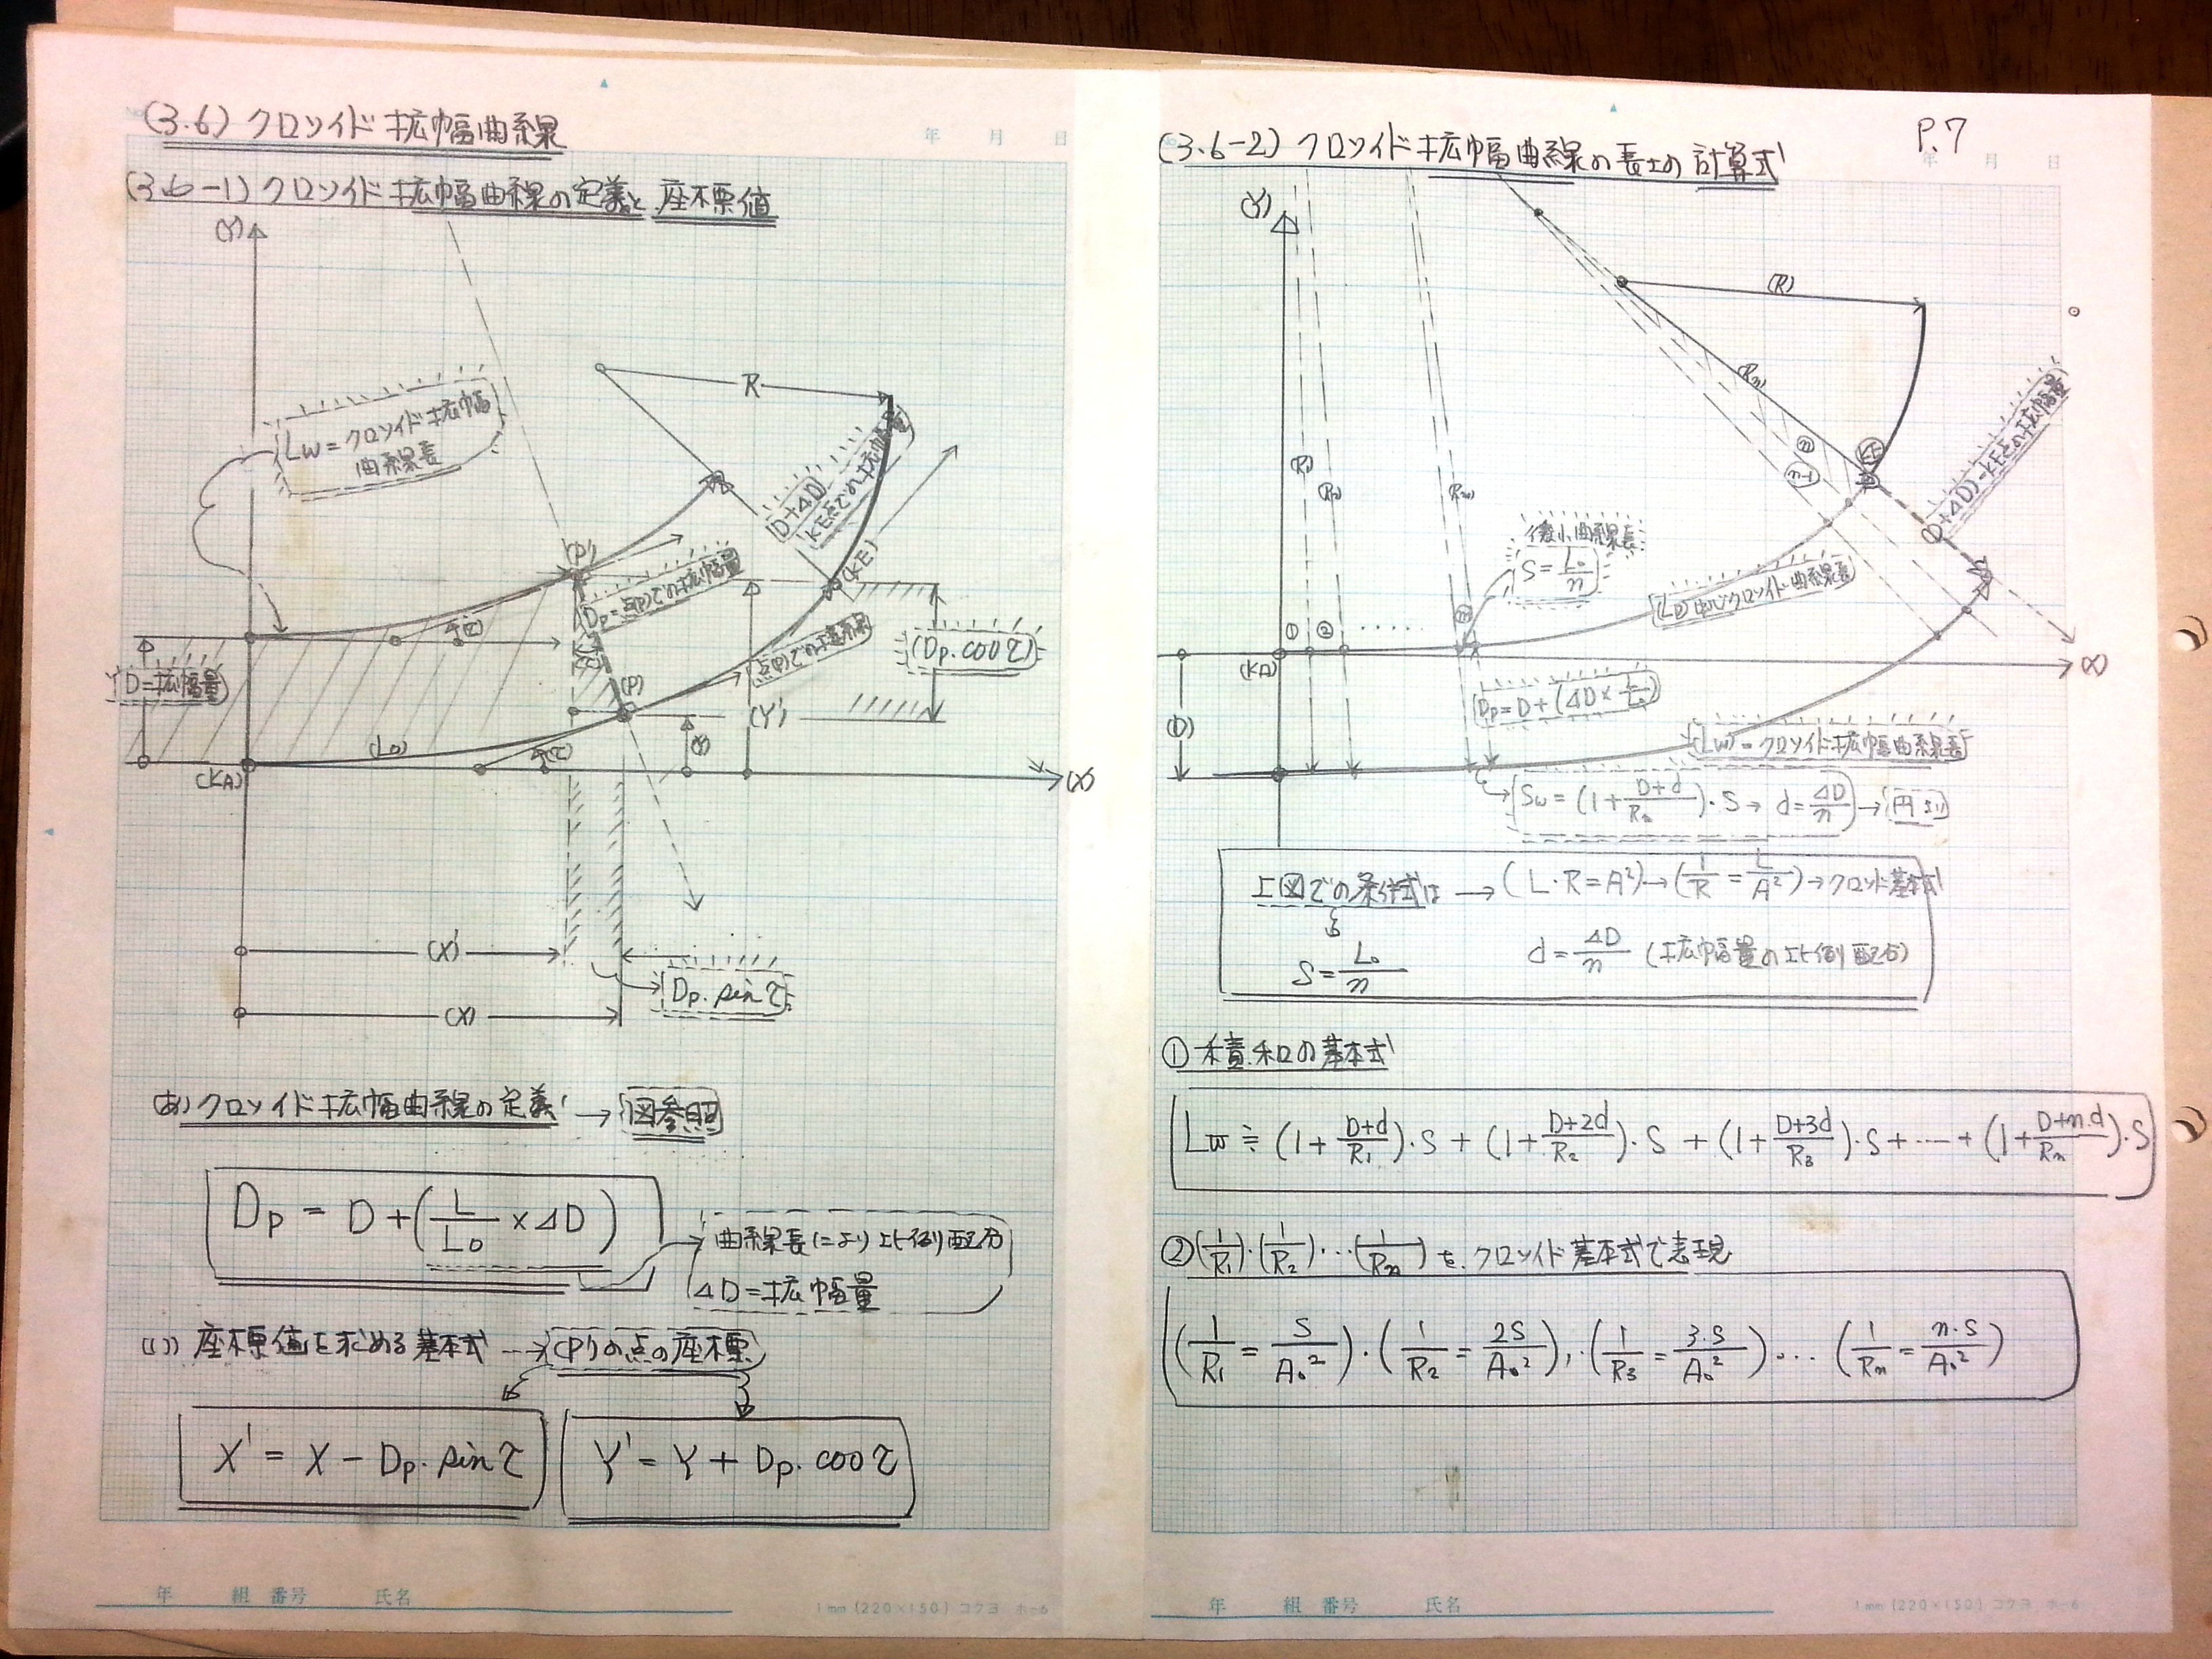 (3.6) クロソイド拡幅曲線
(3.6-1) クロソイド拡幅曲線の定義と座標値
年 月 日
(Y)
Lw=クロソイド拡幅
曲線長
R
(D+ΔD)
KE点での拡幅量
(P')
(KE)
Dp=点(P)での拡幅量
(τ)
(Dp・cosτ)
D=拡幅量
(P)
(Y')
(L0)
(τ)
(Y)
(KA)
(X)
(X')
Dp・sinτ
(X)
(あ) クロソイド拡幅曲線の定義 → 図参照
Dp = D + (L/L0 × ΔD)
曲線長により比例配分
ΔD=拡幅量
(い) 座標値を求める基本式 → (P')の点の座標
X' = X − Dp・sinτ
Y' = Y + Dp・cosτ
年 組 番号 氏名
1mm (220×150) コクヨ ホ-6
P.7
(3.6-2) クロソイド拡幅曲線の長さの計算式
年 月 日
(Y)
(R)
(Rn)
(R1)
(R2)
(Rn)
n
n-1
(KE)
(D+ΔD)=KEでの拡幅量
微小曲線長
S=L0/n
(L0)中心クロソイド曲線長
① ② ・・・・・ n
(KA)
(X)
(D)
Dp=D+(ΔD×L/L0)
(Lw)=クロソイド拡幅曲線長
Sw=(1+(D+d)/Rn)・S → d=ΔD/n → 円より
上図での条件式は → (L・R=A²) → (1/R=L/A²) → クロソイド基本式
S=L0/n d=ΔD/n (拡幅量の比例配分)
① 積和の基本式
Lw≒(1+(D+d)/R1)・S+(1+(D+2d)/R2)・S+(1+(D+3d)/R3)・S+……+(1+(D+n・d)/Rn)・S
② (1/R1)・(1/R2)…(1/Rn) を、クロソイド基本式で表現
(1/R1=S/A0²)・(1/R2=2S/A0²),・(1/R3=3・S/A0²)…(1/Rn=n・S/A0²)
年 組 番号 氏名
1mm (220×150) コクヨ ホ-6